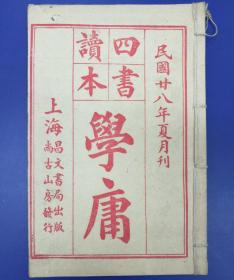 民國廿八年夏月刊
四書
讀本
學庸
上海昌文書局出版
尚古山房發行